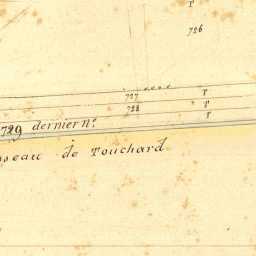 P
726
727 P
728 P
729 dernier N.° P
sseau de Touchard